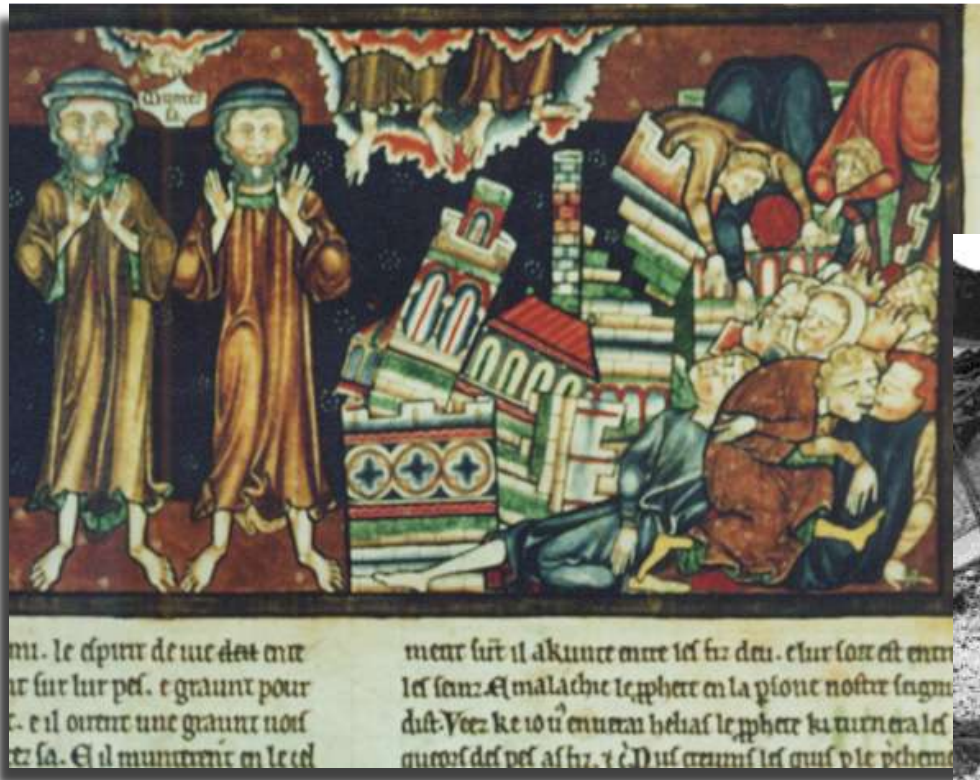 Muntez
sa
mi. le espirit de vie deit entr
t sur lur pes. e graunt pour
. e il oirent une graunt vois
tz sa. E il munterent en le cel
ment sur il akunte entre les fiz deu. e lur sort est entre
les seinz. A malachie le pphete en la psone nostre seign
dist. Veez ke io enuerai helias le pphete ki turnera les
queors des pes as fiz. le pchement